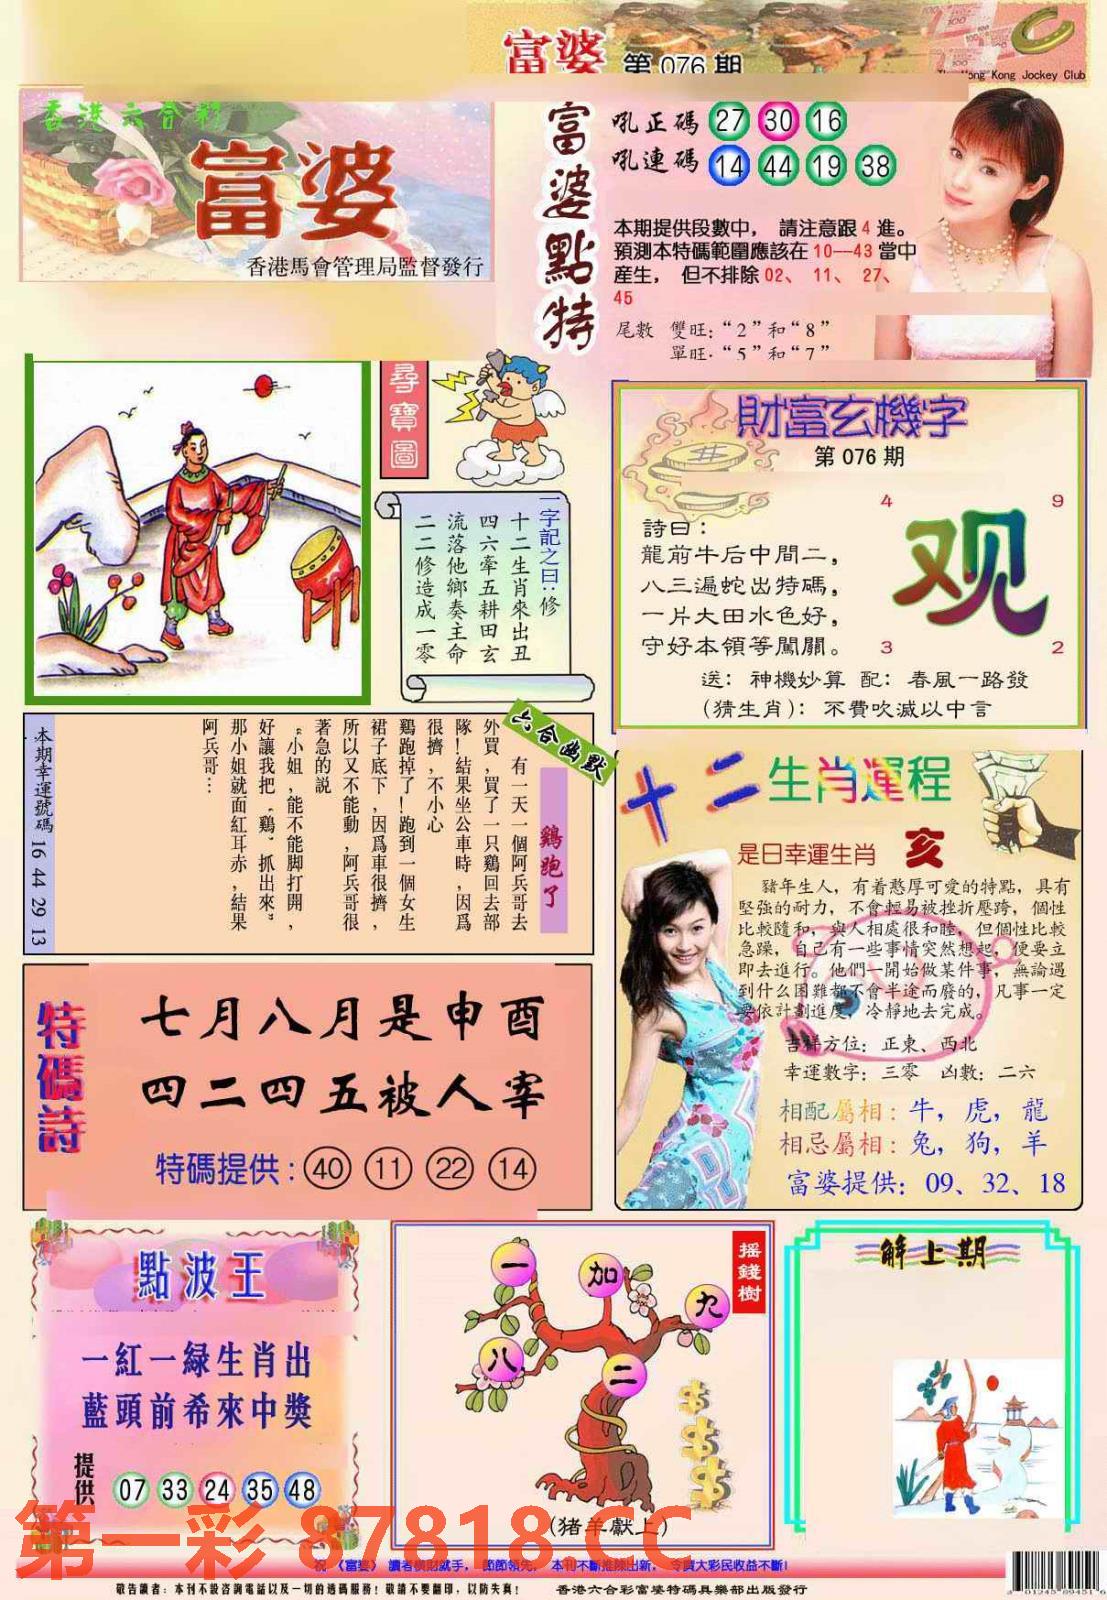 富婆 第 076 期
The Hong Kong Jockey Club
香港六合彩
富婆
香港馬會管理局監督發行
富婆點特
吼正碼 27 30 16
吼連碼 14 44 19 38
本期提供段數中， 請注意跟 4 進。
預測本特碼範圍應該在 10—43 當中
産生， 但不排除 02、 11、 27、
45
尾數 雙旺：“2”和“8”
單旺：“5”和“7”
尋寶圖
一字記之曰：修
十二生肖來出丑
四六牽五耕田玄
流落他鄉奏主命
二二修造成一零
財富玄機字
第 076 期
詩曰：
龍前牛后中間二，
八三遍蛇出特碼，
一片大田水色好，
守好本領等闖關。
4 9
观
3 2
送：神機妙算 配：春風一路發
(猜生肖)：不費吹滅以中言
六合幽默
鷄跑了
有一天一個阿兵哥去
外買，買了一只鷄回去部
隊！結果坐公車時，因爲
很擠，不小心
鷄跑掉了！跑到一個女生
裙子底下，因爲車很擠，
所以又不能動，阿兵哥很
著急的説
“小姐，能不能脚打開，
好讓我把“鷄”抓出來”
那小姐就面紅耳赤，結果
阿兵哥…
本期幸運號碼 16 44 29 13
十二生肖運程
是日幸運生肖 亥
豬年生人，有着憨厚可愛的特點，具有
堅強的耐力，不會輕易被挫折壓跨，個性
比較隨和，與人相處很和睦，但個性比較
急躁，自己有一些事情突然想起，便要立
即去進行。他們一開始做某件事，無論遇
到什么困難都不會半途而廢的，凡事一定
要依計劃進度，冷靜地去完成。
吉祥方位：正東、西北
幸運數字：三零 凶數：二六
相配屬相：牛，虎，龍
相忌屬相：兔，狗，羊
富婆提供：09、32、18
特碼詩
七月八月是申酉
四二四五被人宰
特碼提供：40 11 22 14
點波王
一紅一緑生肖出
藍頭前希來中獎
提供 07 33 24 35 48
搖錢樹
一 加 九
八 二
(猪羊獻上)
解上期
第一彩 87818.CC
祝《富婆》讀者橫財就手，節節領先，本刊不斷推陳出新，令廣大彩民收益不斷！
敬告讀者：本刊不設咨詢電話以及一切的透碼服務！敬請不要翻印，以防失真！ 香港六合彩富婆特碼具樂部出版發行